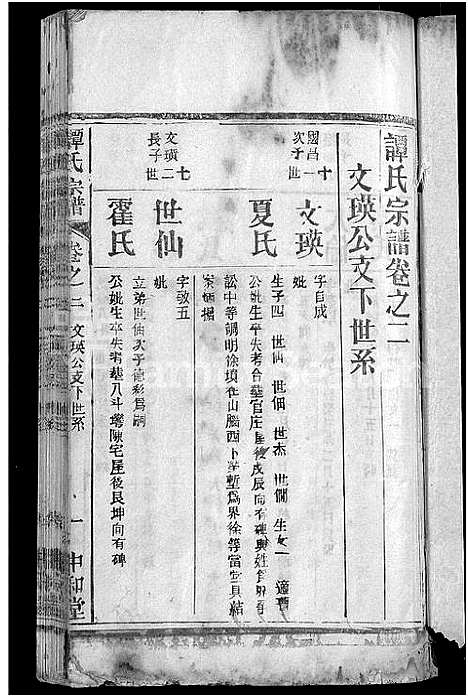 譚氏宗譜卷之二
文瑛公支下世系
十
國昌一
次子世
文瑛
字自成
妣
夏氏
生子四 世仙 世佃 世杰 世僩 生女一 適曹
公妣生卒失考合墓官庄屋後戌辰向有碑與姓
訟中等調明徐墳在山腦西卜 暫爲界徐等當堂具結
案炳據
七
文璜二
長子世
世仙
字敬五
妣
霍氏
立弟世仙次子德 爲嗣
公妣生卒失考墓八斗 陳宅屋後艮坤向有碑
譚氏宗譜
卷之二
文瑛公支下世系
一
中和堂